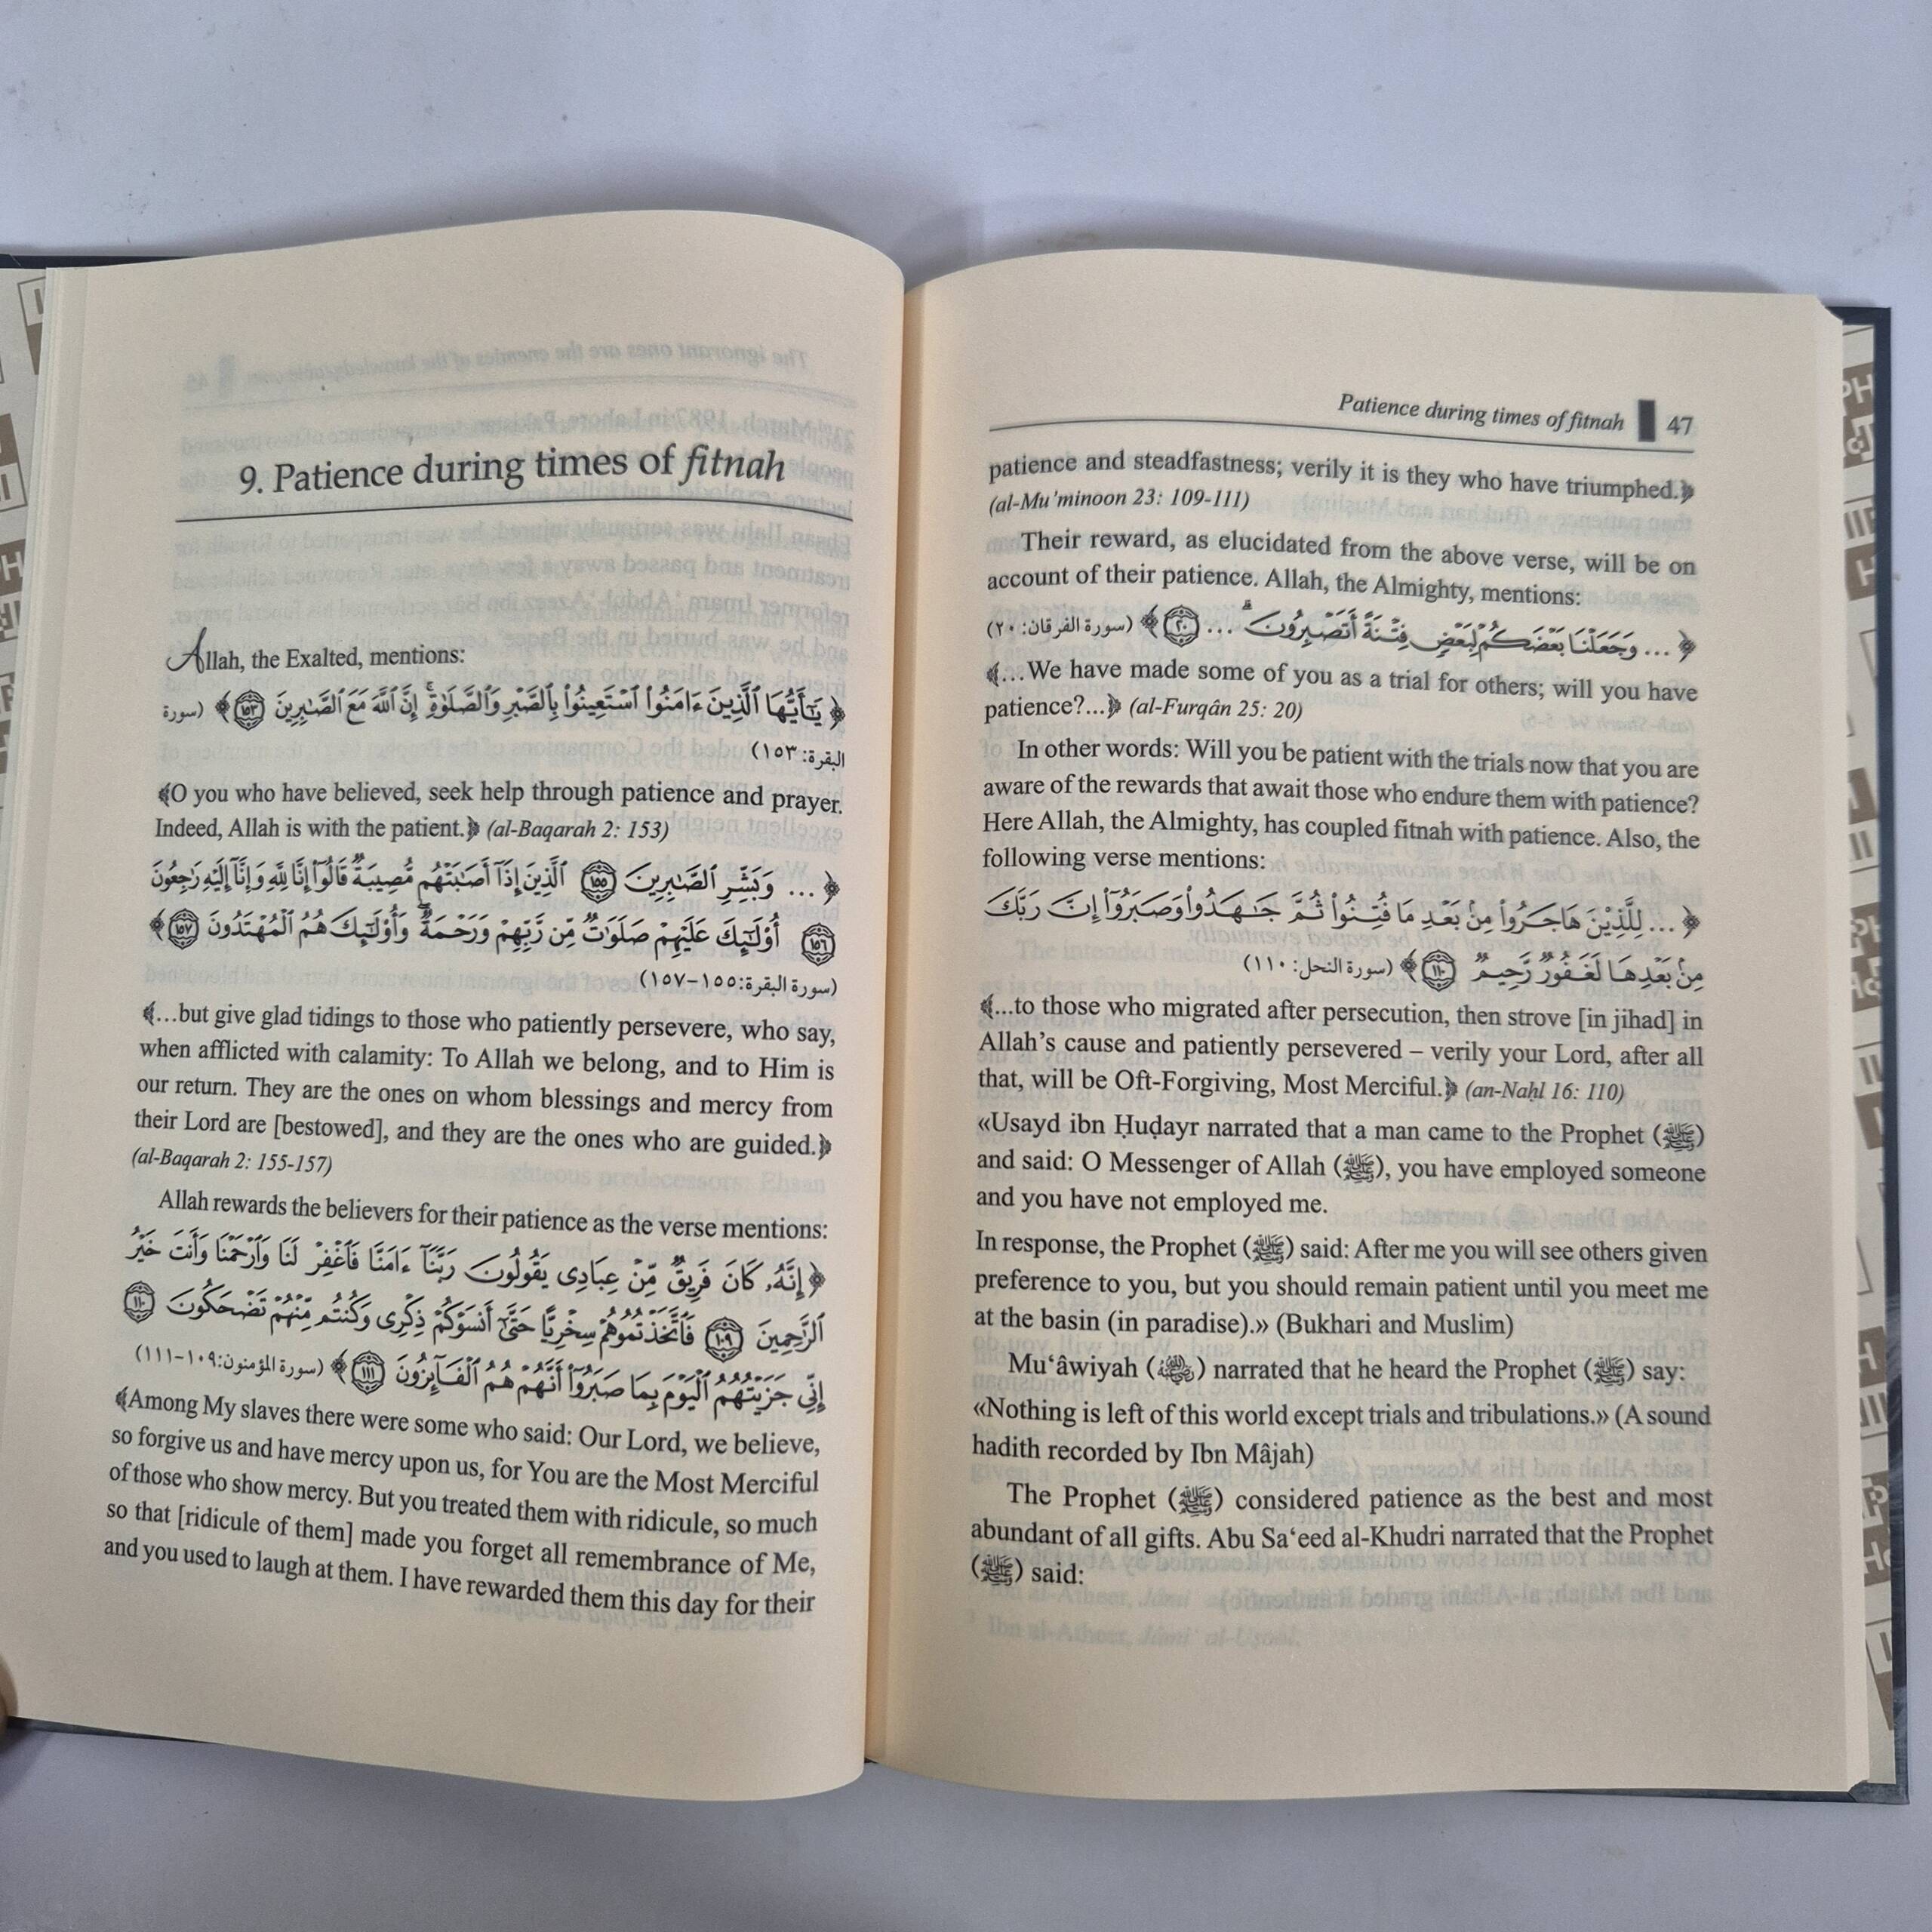 9. Patience during times of fitnah
Allah, the Exalted, mentions:
﴿ يَـٰٓأَيُّهَا ٱلَّذِينَ ءَامَنُوا۟ ٱسْتَعِينُوا۟ بِٱلصَّبْرِ وَٱلصَّلَوٰةِ ۚ إِنَّ ٱللَّهَ مَعَ ٱلصَّـٰبِرِينَ ١٥٣ ﴾ (سورة
البقرة: ١٥٣)
﴾O you who have believed, seek help through patience and prayer.
Indeed, Allah is with the patient.﴿ (al-Baqarah 2: 153)
﴿ ... وَبَشِّرِ ٱلصَّـٰبِرِينَ ١٥٥ ٱلَّذِينَ إِذَآ أَصَـٰبَتْهُم مُّصِيبَةٌ قَالُوٓا۟ إِنَّا لِلَّهِ وَإِنَّآ إِلَيْهِ رَٰجِعُونَ
١٥٦ أُو۟لَـٰٓئِكَ عَلَيْهِمْ صَلَوَٰتٌ مِّن رَّبِّهِمْ وَرَحْمَةٌ ۖ وَأُو۟لَـٰٓئِكَ هُمُ ٱلْمُهْتَدُونَ ١٥٧ ﴾
(سورة البقرة: ١٥٥-١٥٧)
﴾...but give glad tidings to those who patiently persevere, who say,
when afflicted with calamity: To Allah we belong, and to Him is
our return. They are the ones on whom blessings and mercy from
their Lord are [bestowed], and they are the ones who are guided.﴿
(al-Baqarah 2: 155-157)
Allah rewards the believers for their patience as the verse mentions:
﴿ إِنَّهُۥ كَانَ فَرِيقٌ مِّنْ عِبَادِى يَقُولُونَ رَبَّنَآ ءَامَنَّا فَٱغْفِرْ لَنَا وَٱرْحَمْنَا وَأَنتَ خَيْرُ
ٱلرَّٰحِمِينَ ١٠٩ فَٱتَّخَذْتُمُوهُمْ سِخْرِيًّا حَتَّىٰٓ أَنسَوْكُمْ ذِكْرِى وَكُنتُم مِّنْهُمْ تَضْحَكُونَ ١١٠
إِنِّى جَزَيْتُهُمُ ٱلْيَوْمَ بِمَا صَبَرُوٓا۟ أَنَّهُمْ هُمُ ٱلْفَآئِزُونَ ١١١ ﴾ (سورة المؤمنون: ١٠٩-١١١)
﴾Among My slaves there were some who said: Our Lord, we believe,
so forgive us and have mercy upon us, for You are the Most Merciful
of those who show mercy. But you treated them with ridicule, so much
so that [ridicule of them] made you forget all remembrance of Me,
and you used to laugh at them. I have rewarded them this day for their
Patience during times of fitnah 47
patience and steadfastness; verily it is they who have triumphed.﴿
(al-Mu’minoon 23: 109-111)
Their reward, as elucidated from the above verse, will be on
account of their patience. Allah, the Almighty, mentions:
﴿ ... وَجَعَلْنَا بَعْضَكُمْ لِبَعْضٍ فِتْنَةً أَتَصْبِرُونَ ۗ ... ٢٠ ﴾ (سورة الفرقان: ٢٠)
﴾...We have made some of you as a trial for others; will you have
patience?...﴿ (al-Furqân 25: 20)
In other words: Will you be patient with the trials now that you are
aware of the rewards that await those who endure them with patience?
Here Allah, the Almighty, has coupled fitnah with patience. Also, the
following verse mentions:
﴿ ... لِلَّذِينَ هَاجَرُوا۟ مِنۢ بَعْدِ مَا فُتِنُوا۟ ثُمَّ جَـٰهَدُوا۟ وَصَبَرُوٓا۟ إِنَّ رَبَّكَ
مِنۢ بَعْدِهَا لَغَفُورٌ رَّحِيمٌ ١١٠ ﴾ (سورة النحل: ١١٠)
﴾...to those who migrated after persecution, then strove [in jihad] in
Allah’s cause and patiently persevered – verily your Lord, after all
that, will be Oft-Forgiving, Most Merciful.﴿ (an-Naḥl 16: 110)
«Usayd ibn Ḥuḍayr narrated that a man came to the Prophet (ﷺ)
and said: O Messenger of Allah (ﷺ), you have employed someone
and you have not employed me.
In response, the Prophet (ﷺ) said: After me you will see others given
preference to you, but you should remain patient until you meet me
at the basin (in paradise).» (Bukhari and Muslim)
Mu‘âwiyah (رضي الله عنه) narrated that he heard the Prophet (ﷺ) say:
«Nothing is left of this world except trials and tribulations.» (A sound
hadith recorded by Ibn Mâjah)
The Prophet (ﷺ) considered patience as the best and most
abundant of all gifts. Abu Sa‘eed al-Khudri narrated that the Prophet
(ﷺ) said: